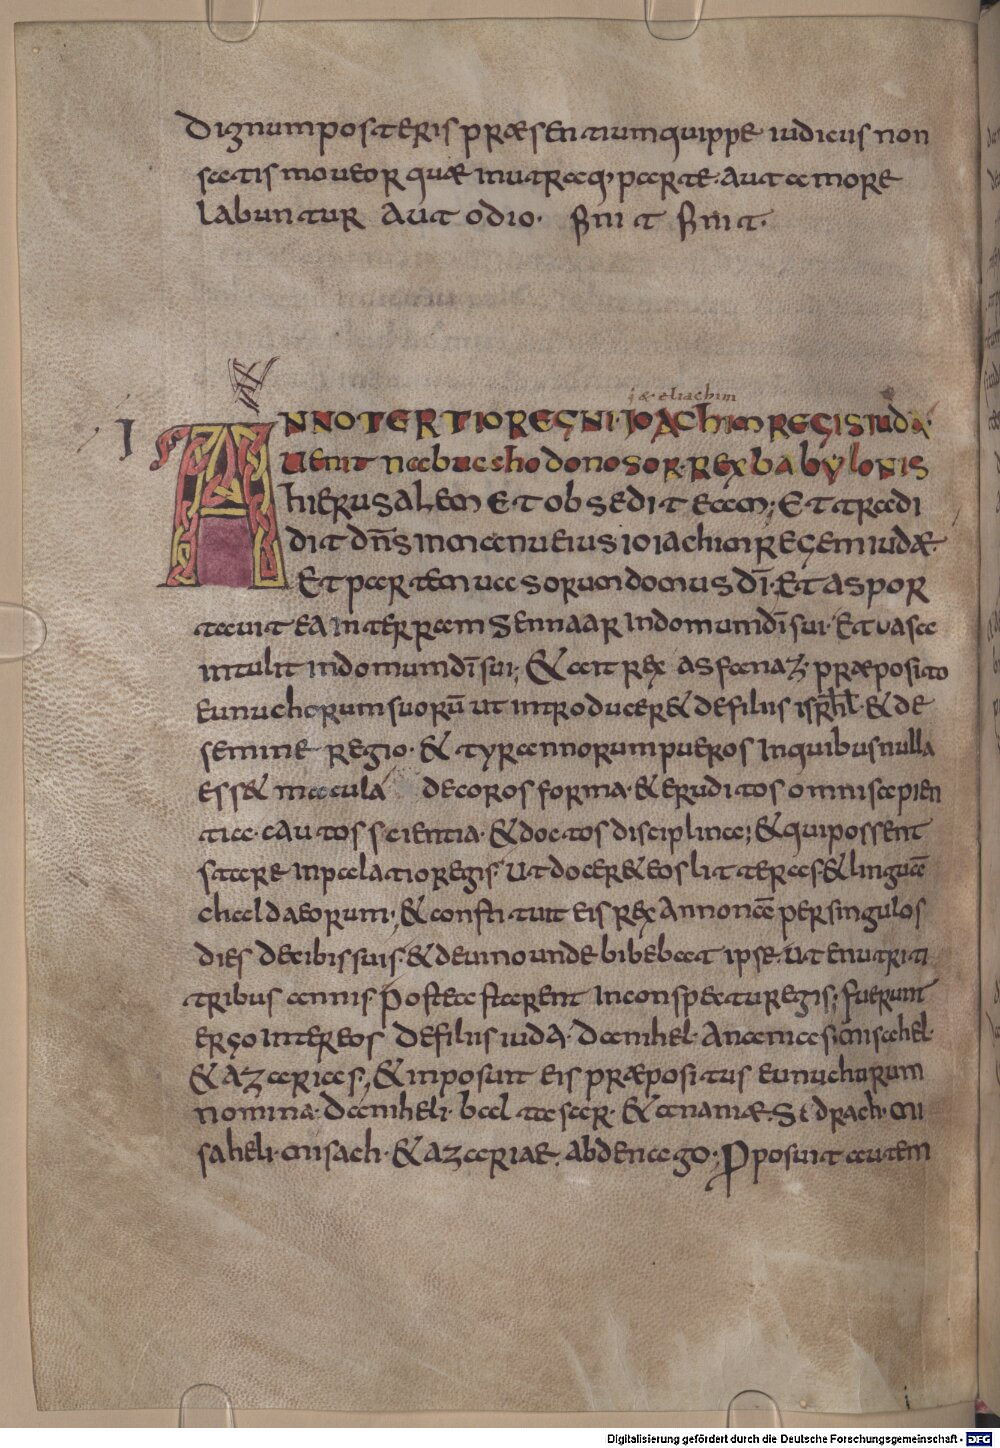 Dignum posteris præsentium quippe iudiciis non
satis moueor quæ in utraq; parte aut amore
labuntur aut odio. finit finit.
i & eliachim
I ANNO TERTIO REGNI IOACHIM REGIS IUDA
uenit nabuchodonosor rex babylonis
hierusalem et obsedit eam; Et tradi
dit dn̄s in manu eius ioiachim regem iudæ
Et partem uasorum domus dī. Et aspor
tauit ea in terram sennaar in domum dī sui. Et uasa
intulit in domum dī sui; & ait rex asfanaz præposito
eunuchorum suorū ut introducer& de filiis isrl̄. & de
semine regio. & tyrannorum pueros in quibus nulla
ess& macula decoros forma. & eruditos omni sapien
tia. cautos scientia. & doctos disciplina; & qui possent
stare in palatio regis. ut docer& eos litteras & linguā
chaldaeorum; & constituit eis rex annonā per singulos
dies de cibis suis. & de uino unde bibebat ipse. ut enutriti
tribus annis. postea starent in conspectu regis; fuerunt
ergo inter eos de filiis iuda. danihel. ananias. misahel.
& azarias; & inposuit eis præpositus eunuchurum
nomina. daniheli. baltasar. & ananiæ. Sidrach. mi
saheli. misach. & azariae. abdenago. Pposuit autem
i
Digitalisierung gefördert durch die Deutsche Forschungsgemeinschaft - DFG